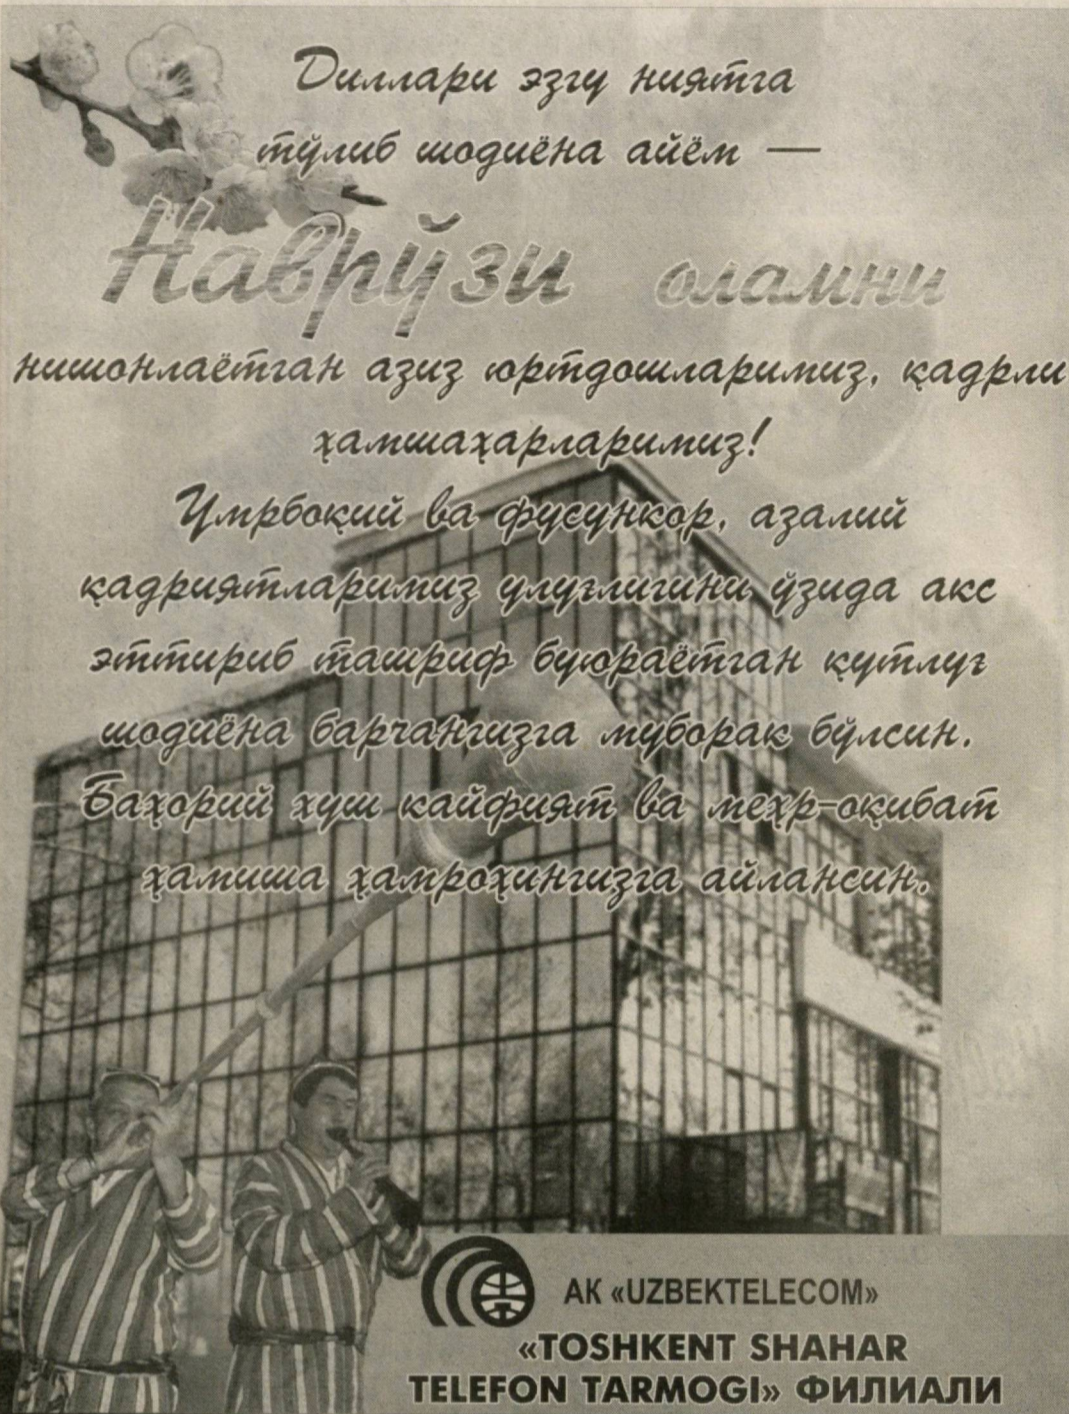 Диллари эзгу ниятга
тўлиб шодиёна айём —
Наврўзи оламни
нишонлаётган азиз юртдошларимиз, қадрли
ҳамшаҳарларимиз!
Умрбоқий ва фусункор, азалий
қадриятларимиз улуғлигини ўзида акс
эттириб ташриф буюраётган қутлуғ
шодиёна барчангизга муборак бўлсин.
Баҳорий хуш кайфият ва меҳр-оқибат
ҳамиша ҳамроҳингизга айлансин.
АК «UZBEKTELECOM»
«TOSHKENT SHAHAR
TELEFON TARMOGI» ФИЛИАЛИ